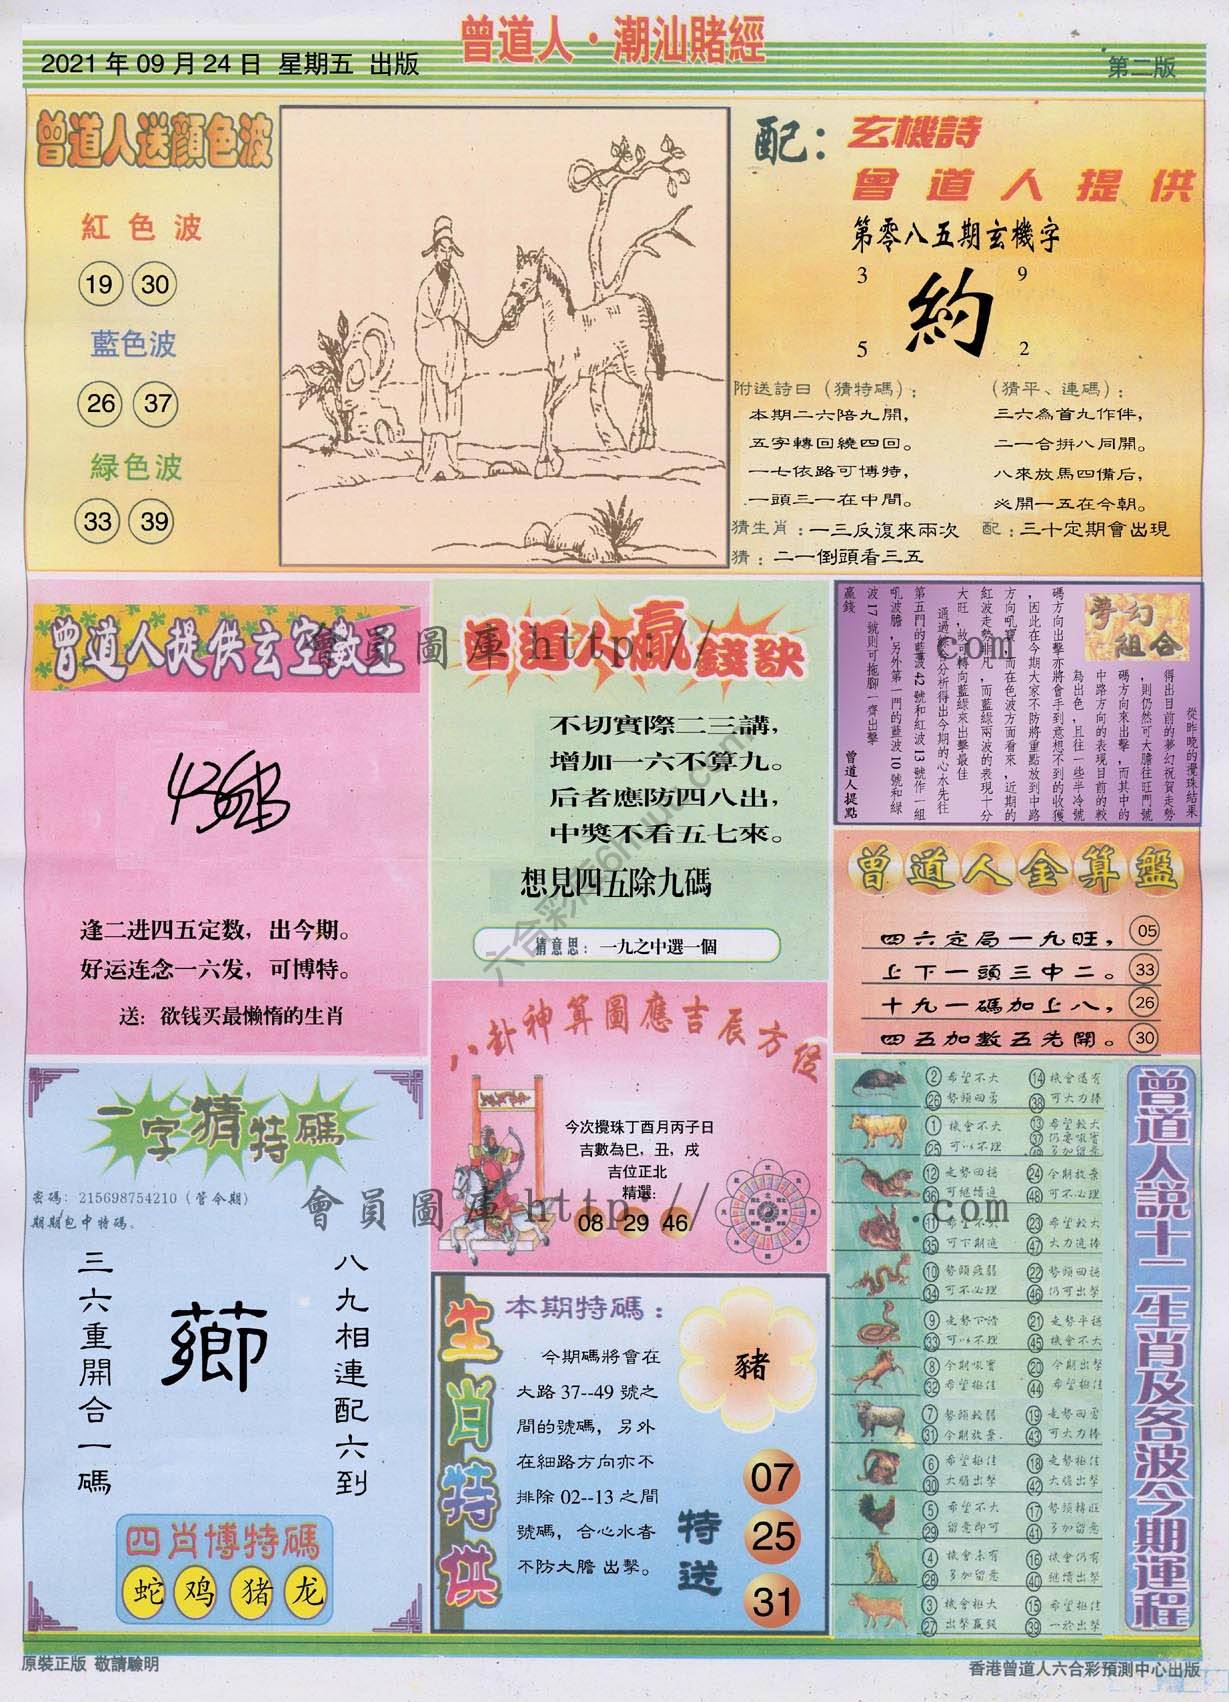 曾道人·潮汕賭經
2021 年 09 月 24 日 星期五 出版
第二版
曾道人送顏色波
紅色波
19 30
藍色波
26 37
緑色波
33 39
配：玄機詩
曾道人提供
第零八五期玄機字
3 9
約
5 2
附送詩曰（猜特碼）：
本期二六陪九開，
五字轉回繞四回。
一七依路可博特，
一頭三一在中間。
（猜平、連碼）：
三六為首九作伴，
二一合拼八同開。
八來放馬四備后，
必開一五在今朝。
猜生肖：一三反復來兩次
配：三十定期會出現
猜：二一倒頭看三五
曾道人提供玄空數王
逢二进四五定数，出今期。
好运连念一六发，可博特。
送：欲钱买最懒惰的生肖
曾道人贏錢訣
不切實際二三講，
增加一六不算九。
后者應防四八出，
中獎不看五七來。
想見四五除九碼
猜意思：一九之中選一個
夢幻組合
從昨晚的攪珠結果
得出目前的夢幻祝賀走勢
，則仍然可大膽往旺門號
碼方向來出擊，而其中的
中路方向的表現目前的較
為出色，且往一些半冷號
碼方向出擊亦將會手到意想不到的收獲
，因此在今期大家不防將重點放到中路
方向吼寶，而在色波方面看來，近期的
紅波走勢非凡，而藍綠兩波的表現十分
大旺，故可轉向藍綠來出擊最佳
通過綜合分析得出今期的心水先往
第五門的藍波 42 號和紅波 13 號作一組
吼波膽，另外第一門的藍波 10 號和綠
波 17 號則可拖腳一齊出擊
贏錢
曾道人提點
曾道人金算盤
四六定局一九旺， 05
上下一頭三中二。 33
十九一碼加上八， 26
四五加數五先開。 30
八卦神算圖應吉辰方位
今次攪珠丁酉月丙子日
吉數為巳，丑，戌
吉位正北
精選：
08 29 46
一字猜特碼
密碼：215698754210（管令期）
期期包中特碼。
八九相連配六到
薌
三六重開合一碼
四肖博特碼
蛇 鸡 猪 龙
生肖特供
本期特碼：
今期碼將會在
大路 37--49 號之
間的號碼，另外
在細路方向亦不
排除 02--13 之間
號碼，合心水者
不防大膽 出擊。
豬
特送
07
25
31
曾道人説十二生肖及各波今期運程
② 希望不大 ⑭ 機會還有
㉖ 勢頭回勇 ㊳ 可大力捧
① 機會不大 ⑬ 希望較大
㉕ 可以不理
⑫ 走勢回穩 ㉔ 今期放棄
㊱ 可繼續追 ㊽ 可不必理
㉓ 希望較大
㉟ 可下期追 ㊼ 大力追捧
⑩ 勢頭疲弱 ㉒ 勢頭回穩
㉞ 可不必理 ㊻ 仍可出擊
⑨ 走勢下滑 ㉑ 走勢平穩
㉝ 可以不理 ㊺ 機會不大
⑧ 今期吼實 ⑳ 今期出擊
㉜ 希望極佳 ㊹ 希望極佳
⑦ 勢頭較弱 ⑲ 走勢回勇
㉛ 今期放棄. ㊸ 可大力捧
⑥ 希望極佳 ⑱ 走勢極佳
㉚ 大膽出擊 ㊷ 大膽出擊
⑤ 希望不大 ⑰ 勢頭轉旺
㉙ 留意即可 ㊶ 多加留意
④ 機會未有 ⑯ 機會仍有
㉘ 多加留意 ㊵ 繼續出擊
③ 機會極大 ⑮ 希望極佳
㉗ 出擊贏錢 ㊴ 一於出擊
會員圖庫 http:// .com
會員圖庫 http:// .com
原裝正版 敬請驗明
香港曾道人六合彩預測中心出版